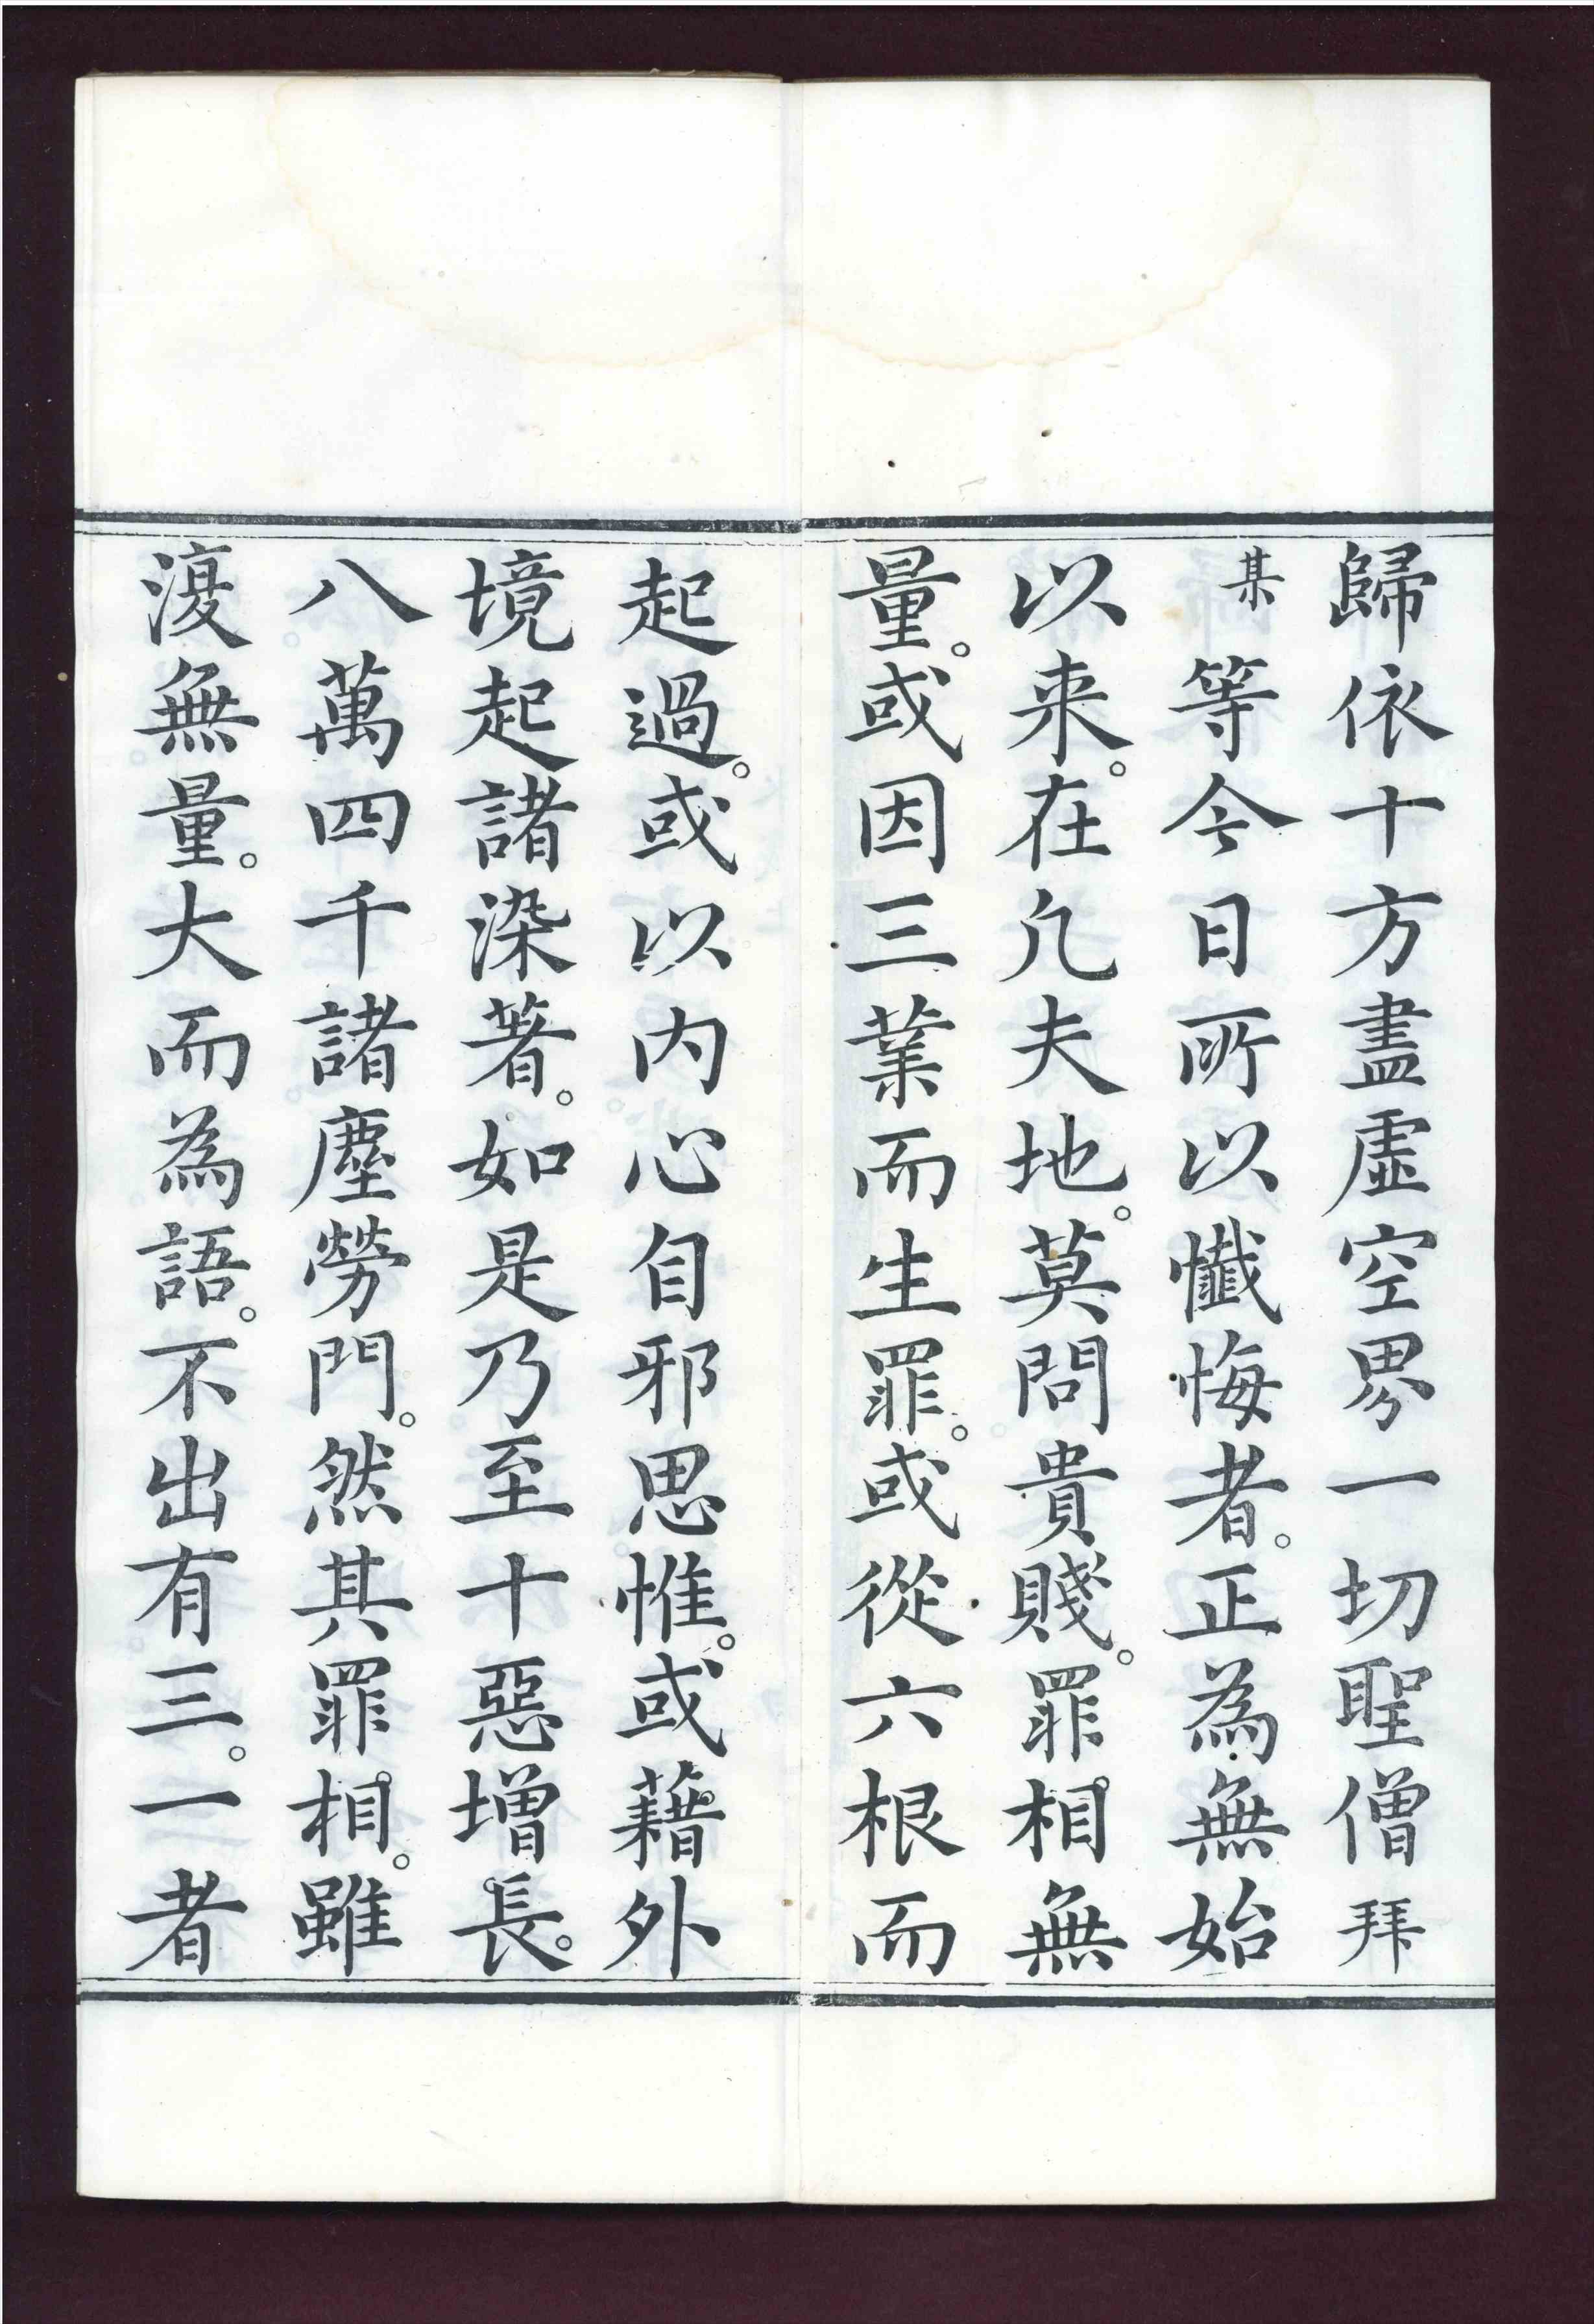 歸依十方盡虛空界一切聖僧拜
某等今日所以懺悔者。正為無始
以来。在凢夫地。莫問貴賤。罪相無
量。或因三業而生罪。或從六根而
起過。或以内心自邪思惟。或藉外
境起諸染著。如是乃至十惡增長。
八萬四千諸塵勞門。然其罪相。雖
復無量。大而為語。不出有三。一者